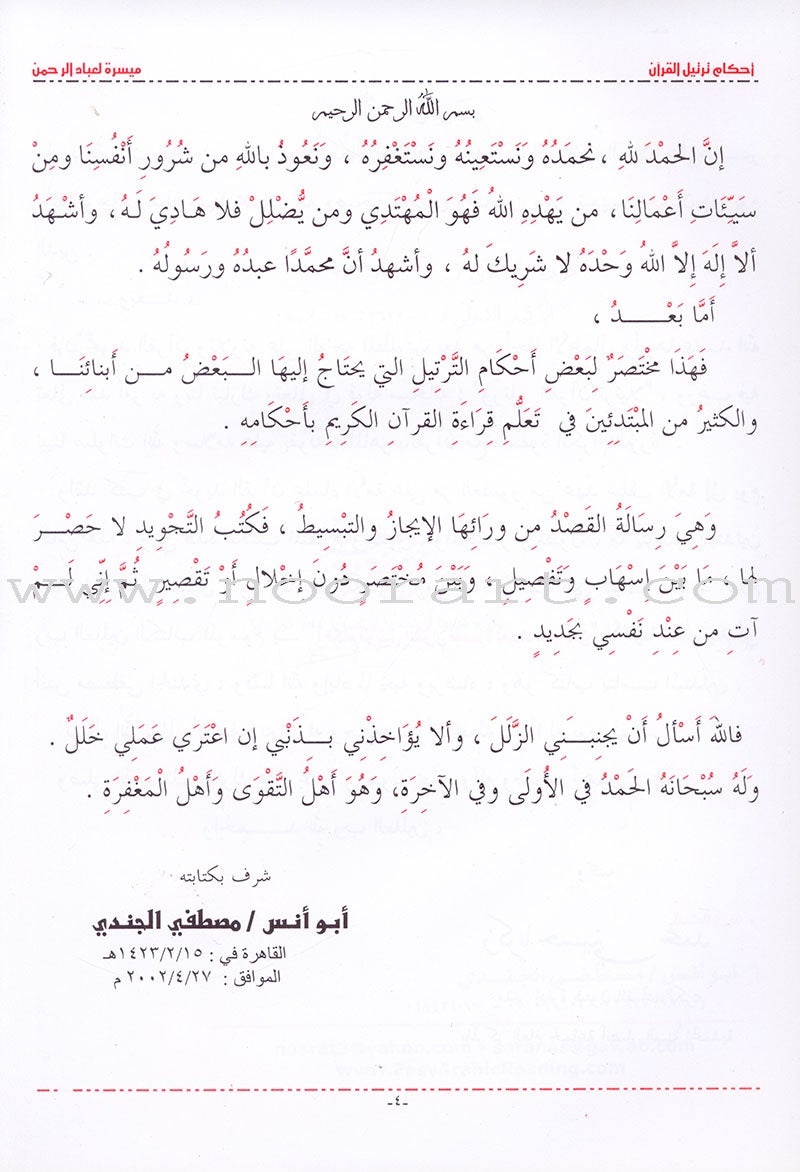 أحكام ترتيل القرآن ميسرة لعباد الرحمن
بسم الله الرحمن الرحيم
إنَّ الحمْدَ للهِ ، نحمَدُهُ وَنَسْتَعِينُهُ وَنَسْتَغْفِرُهُ ، وَنَعُوذُ باللهِ من شُرُورِ أَنْفُسِنَا ومِنْ
سَيِّئَاتِ أَعْمَالِنَا ، من يَهْدِهِ اللهُ فَهُوَ الْمُهْتَدِي ومن يُّضْلِلْ فلا هَادِيَ لَهُ ، وأشْهَدُ
ألاَّ إِلَهَ إِلاَّ اللهُ وَحْدَهُ لا شَرِيكَ لهُ ، وأشهدُ أنَّ محمَّدًا عبدُهُ ورَسُولُهُ .
أمَّا بَعْـــــدُ ،
فَهَذَا مخْتَصَرٌ لِبَعْضِ أَحْكَامِ التَّرْتِيلِ التي يحتَاجُ إليهَا الــبَعْضُ مــن أَبنائِنَــا ،
والكثيرُ من المبْتَدِئِينَ في تَعَلُّمِ قراءَةِ القرآن الكَرِيمِ بأحْكَامِهِ .
وَهِيَ رِسَالَةُ القَصْدُ مِن ورَائِهَا الإيجَازُ والتبْسِيطُ ، فَكُتُبُ التَّجْوِيدِ لا حَصْــرَ
لها ، مَا بَيْنَ إِسْهَابٍ وَتَفْصِيلٍ ، وَبَيْنَ مُخْتَصَرٍ دُونَ إخْلالٍ أَوْ تَقْصِيرٍ ثُمَّ إنِّي لَــمْ
www.noorart.com
آتِ من عِنْدِ نَفْسِي بجَدِيدٍ .
فاللهَ أَسْألُ أَنْ يجنِبــَنِي الزَّلَلَ ، وألا يُؤَاخِذْنِي بــذَنْبِي إن اعْتَرَى عَمَلِي خَلَلٌ .
وَلَهُ سُبْحَانَهُ الحَمْدُ في الأُولَى وفي الآخِرَةِ، وَهُوَ أَهْلُ التَّقْوَى وَأَهْلُ الْمَغْفِرَةِ .
شرف بكتابته
أبو أنس / مصطفي الجندي
القاهرة في : ١٤٢٣/٢/١٥هـ
الموافق : ٢٠٠٢/٤/٢٧ م
-٤-